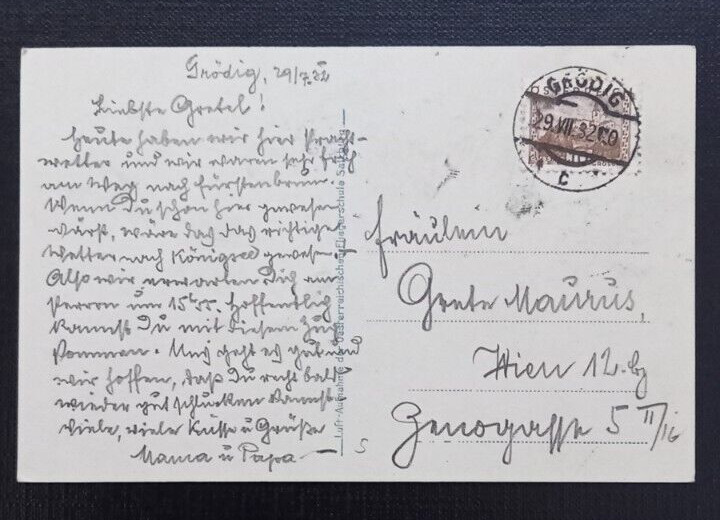 Grödig, 29/7.32
Liebste Gretel!
Heute haben wir hier Pracht-
wetter und wir waren sehr früh
am Weg nach Fürstenbrunn.
Wenn Du schon hier gewesen
wärst, wäre das das richtige
Wetter nach Königssee gewesen.
Also wir erwarten Dich am
Perron um 15 55. Hoffentlich
kannst Du mit diesem Zug
kommen. Uns geht es gut und
wir hoffen, daß Du recht bald
wieder gut schlucken kannst.
Viele, viele Küsse u Grüße
Mama u Papa
Luft-Aufnahme der Oesterreichischen Fliegerschule Salzburg
GRÖDIG
29.VII.32
c
Fräulein
Grete Maurus,
Wien 12.
gasse 5 II/16
S